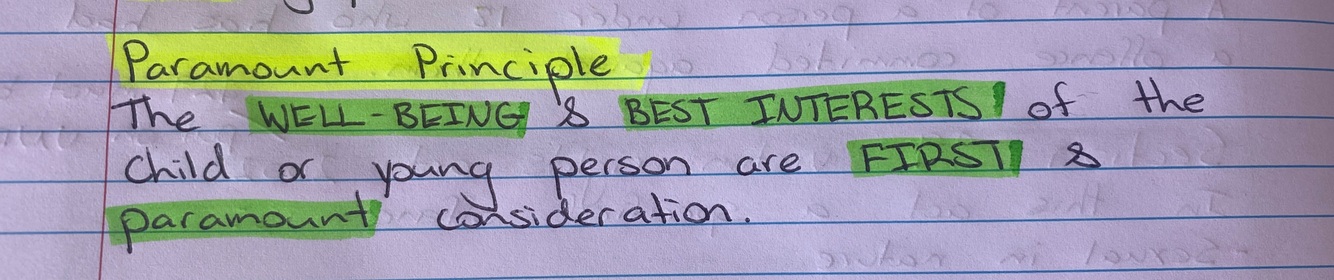 Paramount Principle
The WELL-BEING & BEST INTERESTS of the
Child or young person are FIRST &
paramount consideration.